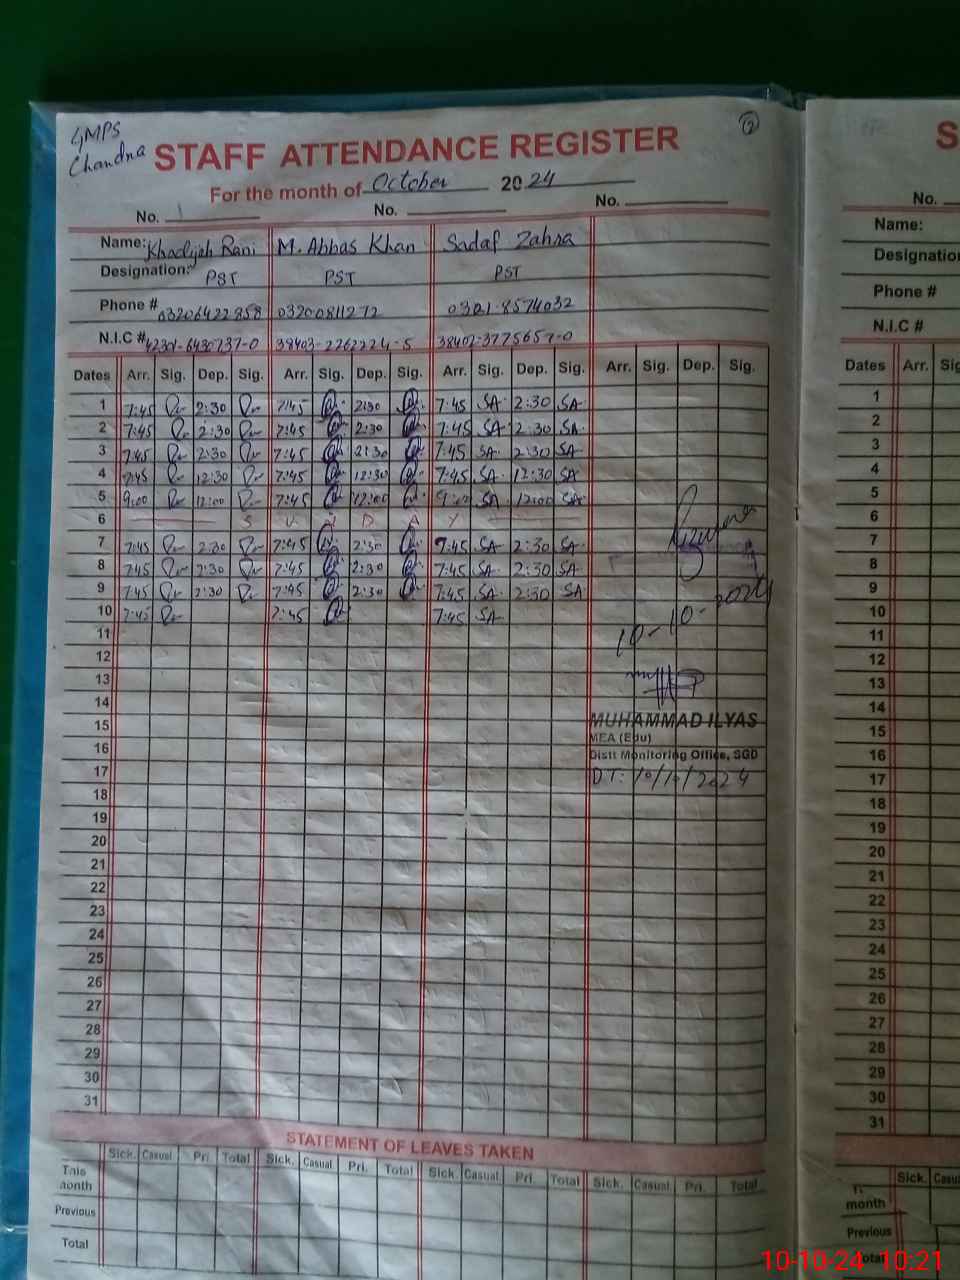 GMPS
Chandna
STAFF ATTENDANCE REGISTER
For the month of October 2024
No. 1 No. No.
Name: Khadijah Rani M. Abbas Khan Sadaf Zahra
Designation: PST PST PST
Phone # 03206422858 03200811272 0301-8574032
N.I.C # 42301-6430737-0 38403-2262224-5 38402-3775657-0
Dates Arr. Sig. Dep. Sig. Arr. Sig. Dep. Sig. Arr. Sig. Dep. Sig. Arr. Sig. Dep. Sig.
1 7:45 2:30 7:45 2:30 7:45 SA 2:30 SA
2 7:45 2:30 7:45 2:30 7:45 SA 2:30 SA
3 7:45 2:30 7:45 2:30 7:45 SA 2:30 SA
4 7:45 12:30 7:45 12:30 7:45 SA 12:30 SA
5 9:00 12:00 7:45 12:00 SA 12:00 SA
6 S U N D A Y
7 7:45 2:30 7:45 2:30 7:45 SA 2:30 SA
8 7:45 2:30 7:45 2:30 7:45 SA 2:30 SA
9 7:45 2:30 7:45 2:30 7:45 SA 2:30 SA
10 7:45 7:45 7:45 SA
10-10-2024
11
12
13
14
15 MUHAMMAD ILYAS
MEA (Edu)
16 Distt Monitoring Office, SGD
17 DT: 10/10/2024
18
19
20
21
22
23
24
25
26
27
28
29
30
31
STATEMENT OF LEAVES TAKEN
Sick. Casual Pri. Total Sick. Casual Pri. Total Sick. Casual Pri. Total Sick. Casual Pri. Total
This month
Previous
Total
S
No.
Name:
Designatio
Phone #
N.I.C #
Dates Arr. Sig
1
2
3
4
5
6
7
8
9
10
11
12
13
14
15
16
17
18
19
20
21
22
23
24
25
26
27
28
29
30
31
Sick. Casu
month
Previous
Total
10-10-24 10:21